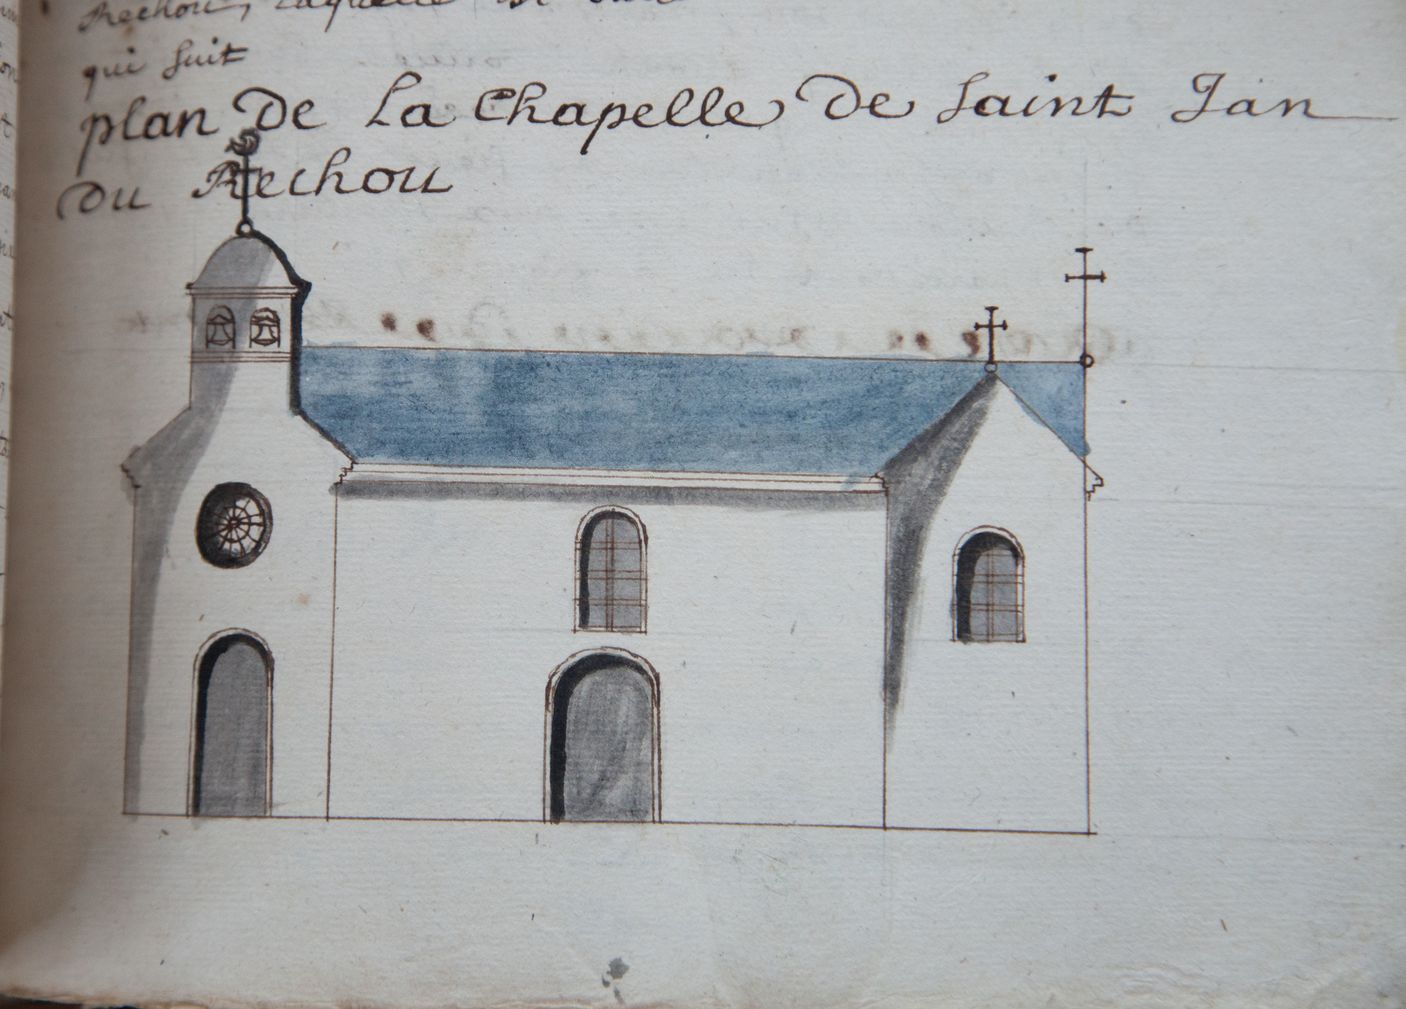 Rechou, laquelle est
qui suit
plan de La Chapelle de saint Jan
du Rechou